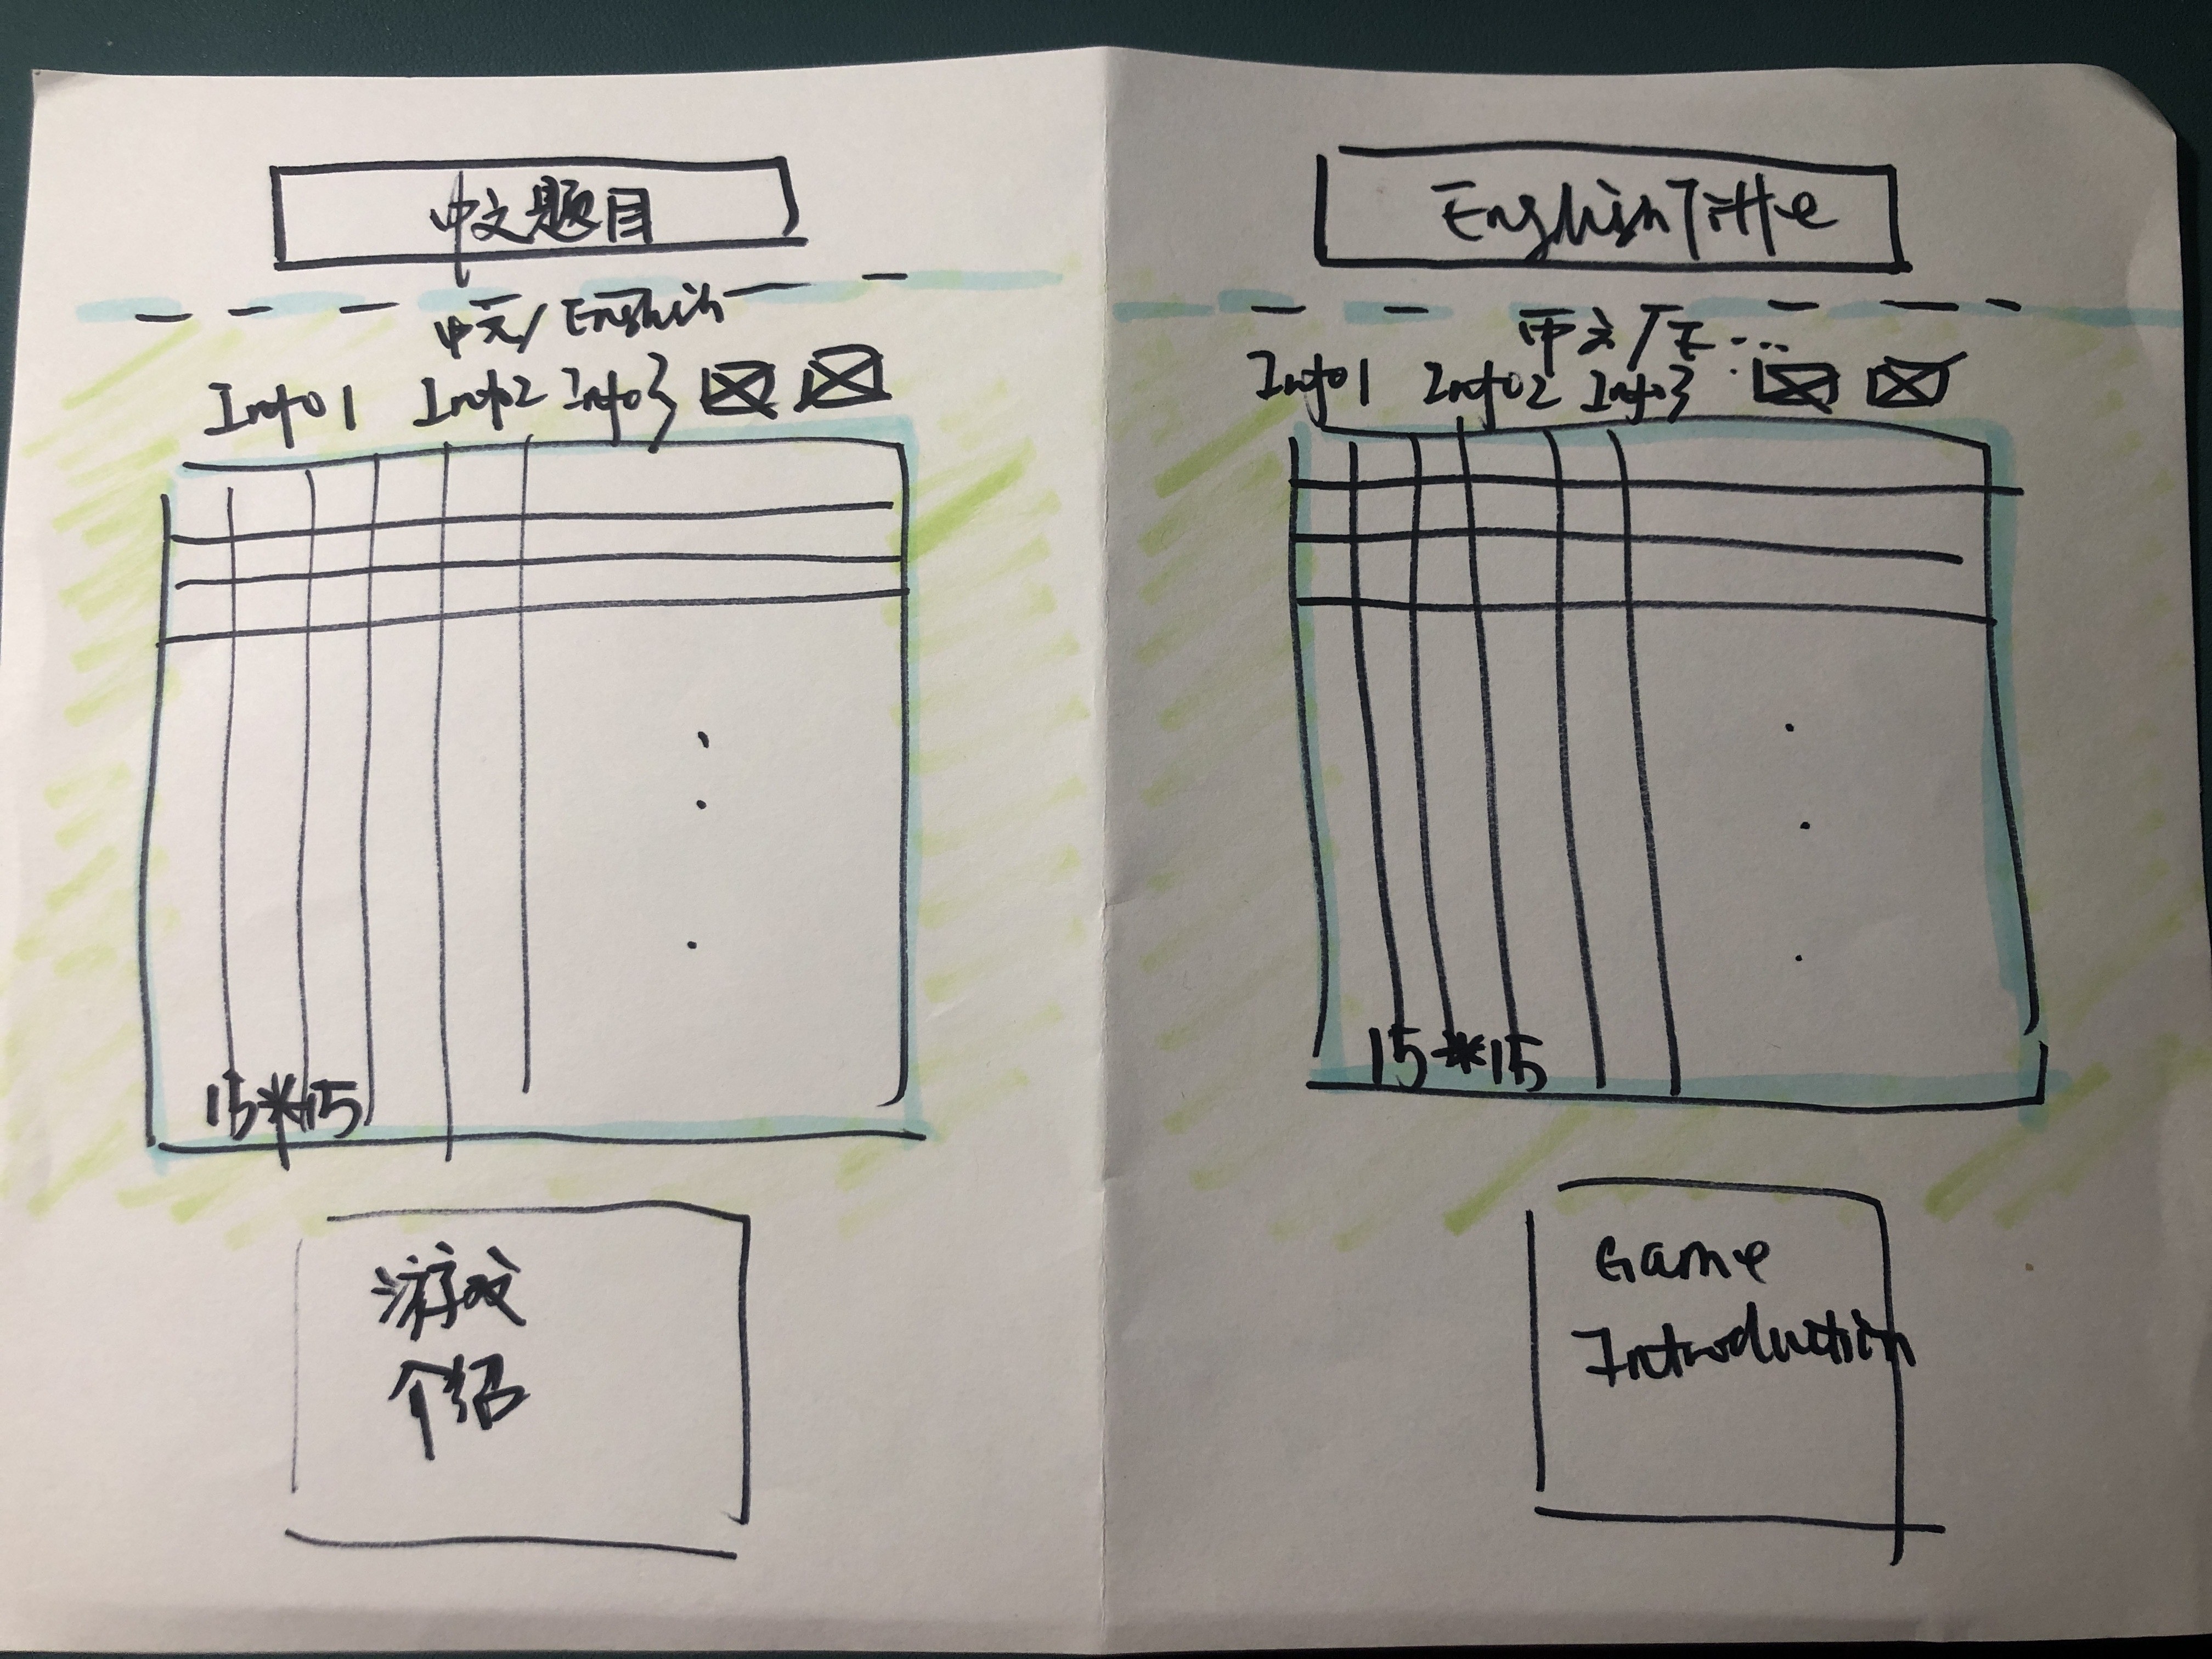 中文题目
中文/English
Info1 Info2 Info3
15*15
游戏
介绍
English Title
中文/E...
Info1 Info2 Info3
15*15
Game
Introduction